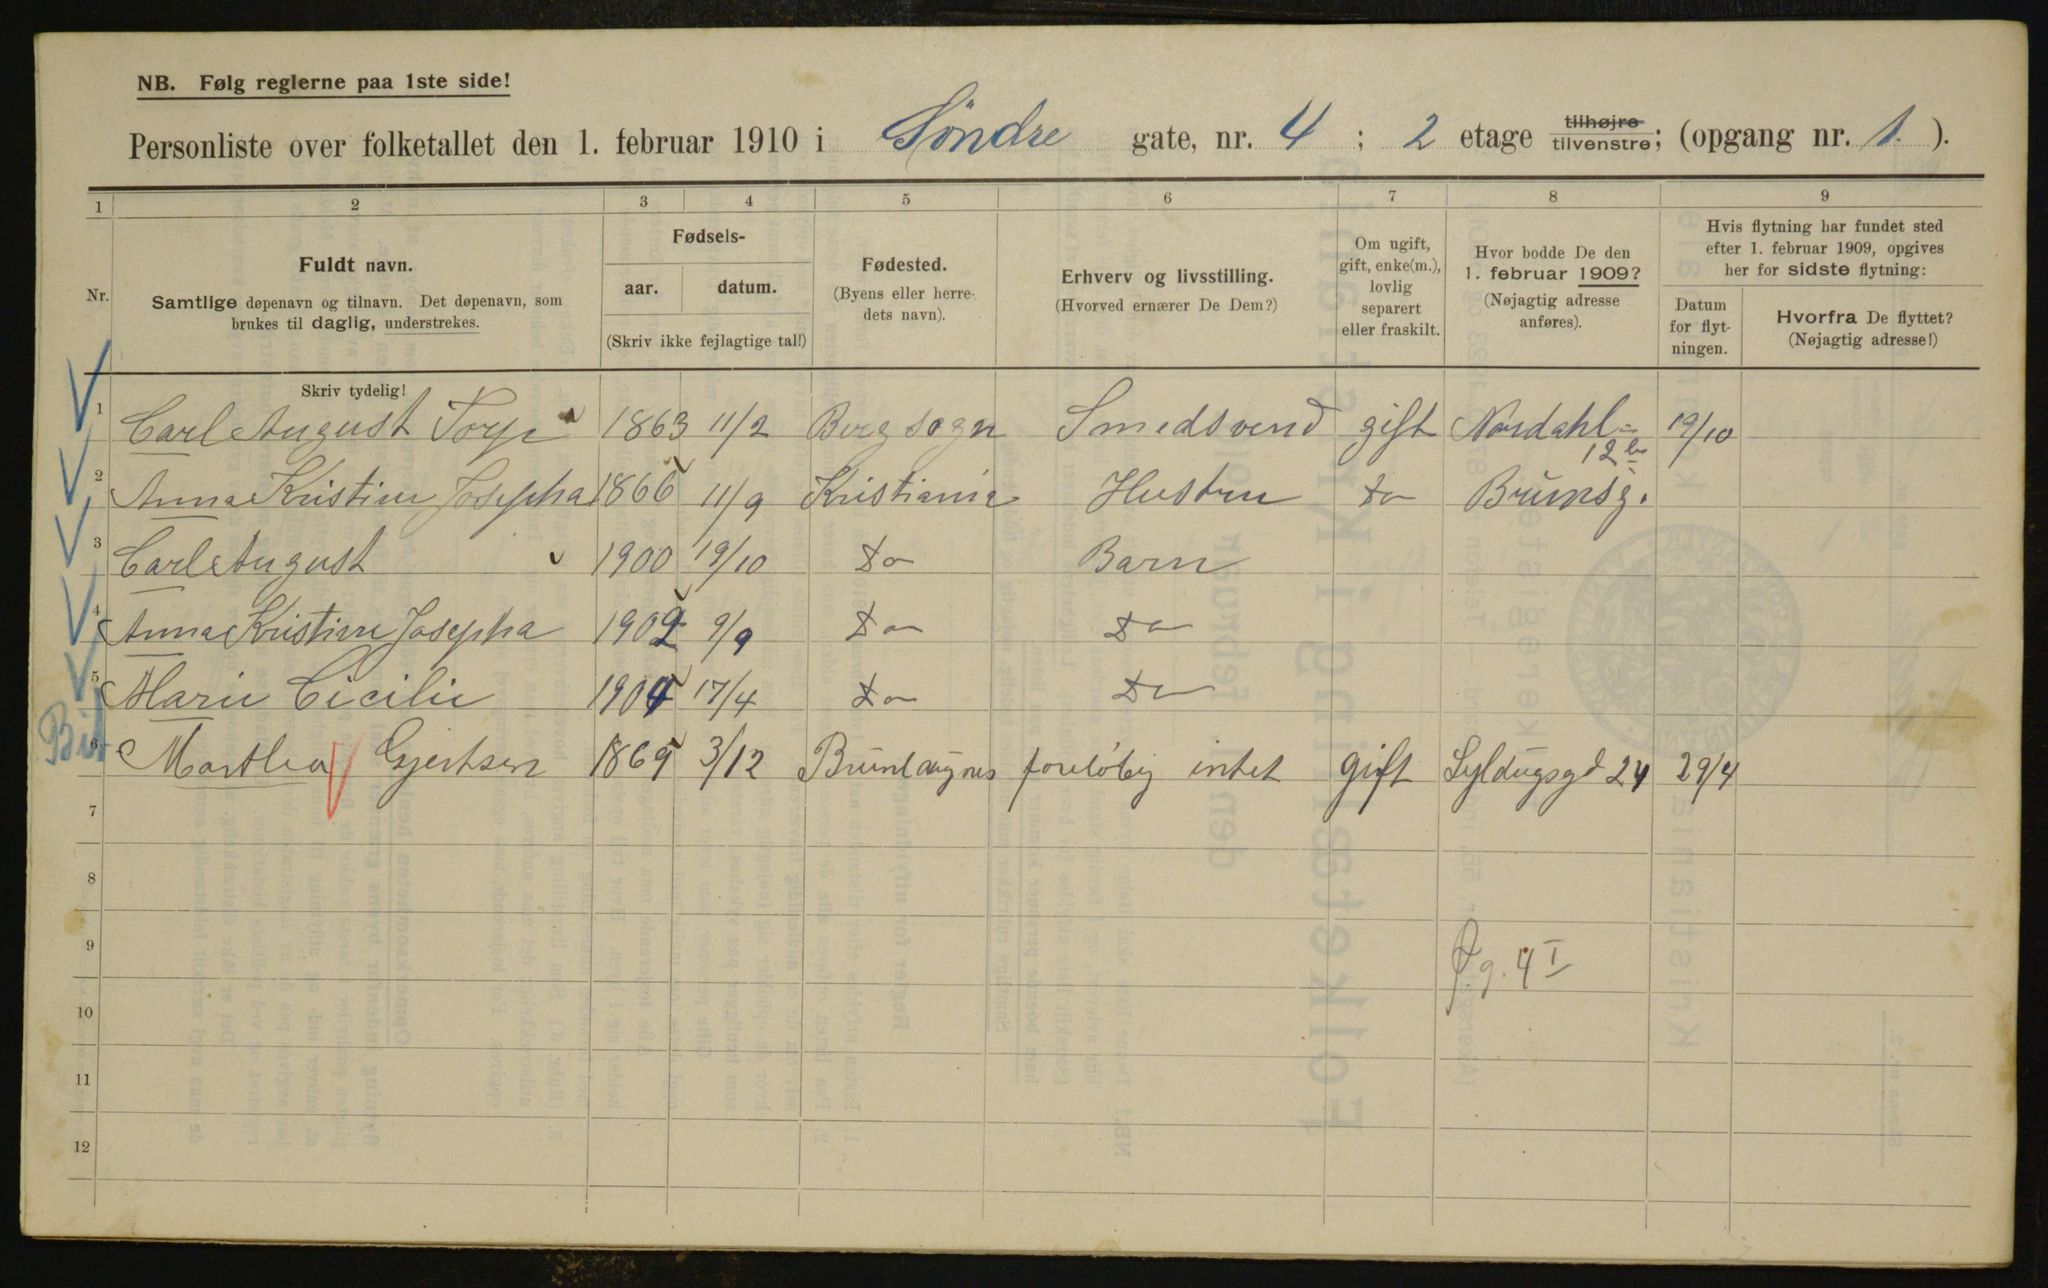 NB. Følg reglerne paa 1ste side!
Personliste over folketallet den 1. februar 1910 i Söndre gate, nr. 4 ; 2 etage tilhøjre tilvenstre; (opgang nr. 1. ).
1 2 3 4 5 6 7 8 9
Nr.
Fuldt navn.
Samtlige døpenavn og tilnavn. Det døpenavn, som
brukes til daglig, understrekes.
Fødsels-
aar. datum.
(Skriv ikke fejlagtige tal!)
Fødested.
(Byens eller herre-
dets navn).
Erhverv og livsstilling.
(Hvorved ernærer De Dem?)
Om ugift,
gift, enke(m.),
lovlig
separert
eller fraskilt.
Hvor bodde De den
1. februar 1909?
(Nøjagtig adresse
anføres).
Hvis flytning har fundet sted
efter 1. februar 1909, opgives
her for sidste flytning:
Datum
for flyt-
ningen.
Hvorfra De flyttet?
(Nøjagtig adresse!)
Skriv tydelig!
1 Carl August Torp 1863 11/2 Berg sogn Smedsvend gift Nordahl- 19/10
12
2 Anna Kristine Josepha 1866 11/9 Kristiania Hustru do Brunsg.
3 Carl August 1900 19/10 do Barn
4 Anna Kristine Josepha 1902 9/9 do do
5 Marie Cicilie 1904 17/4 do do
6 Marthea Gjertsen 1869 3/12 Brunlaugnes foreløbig intet gift 24 29/4
7
8
9 4 I
10
11
12